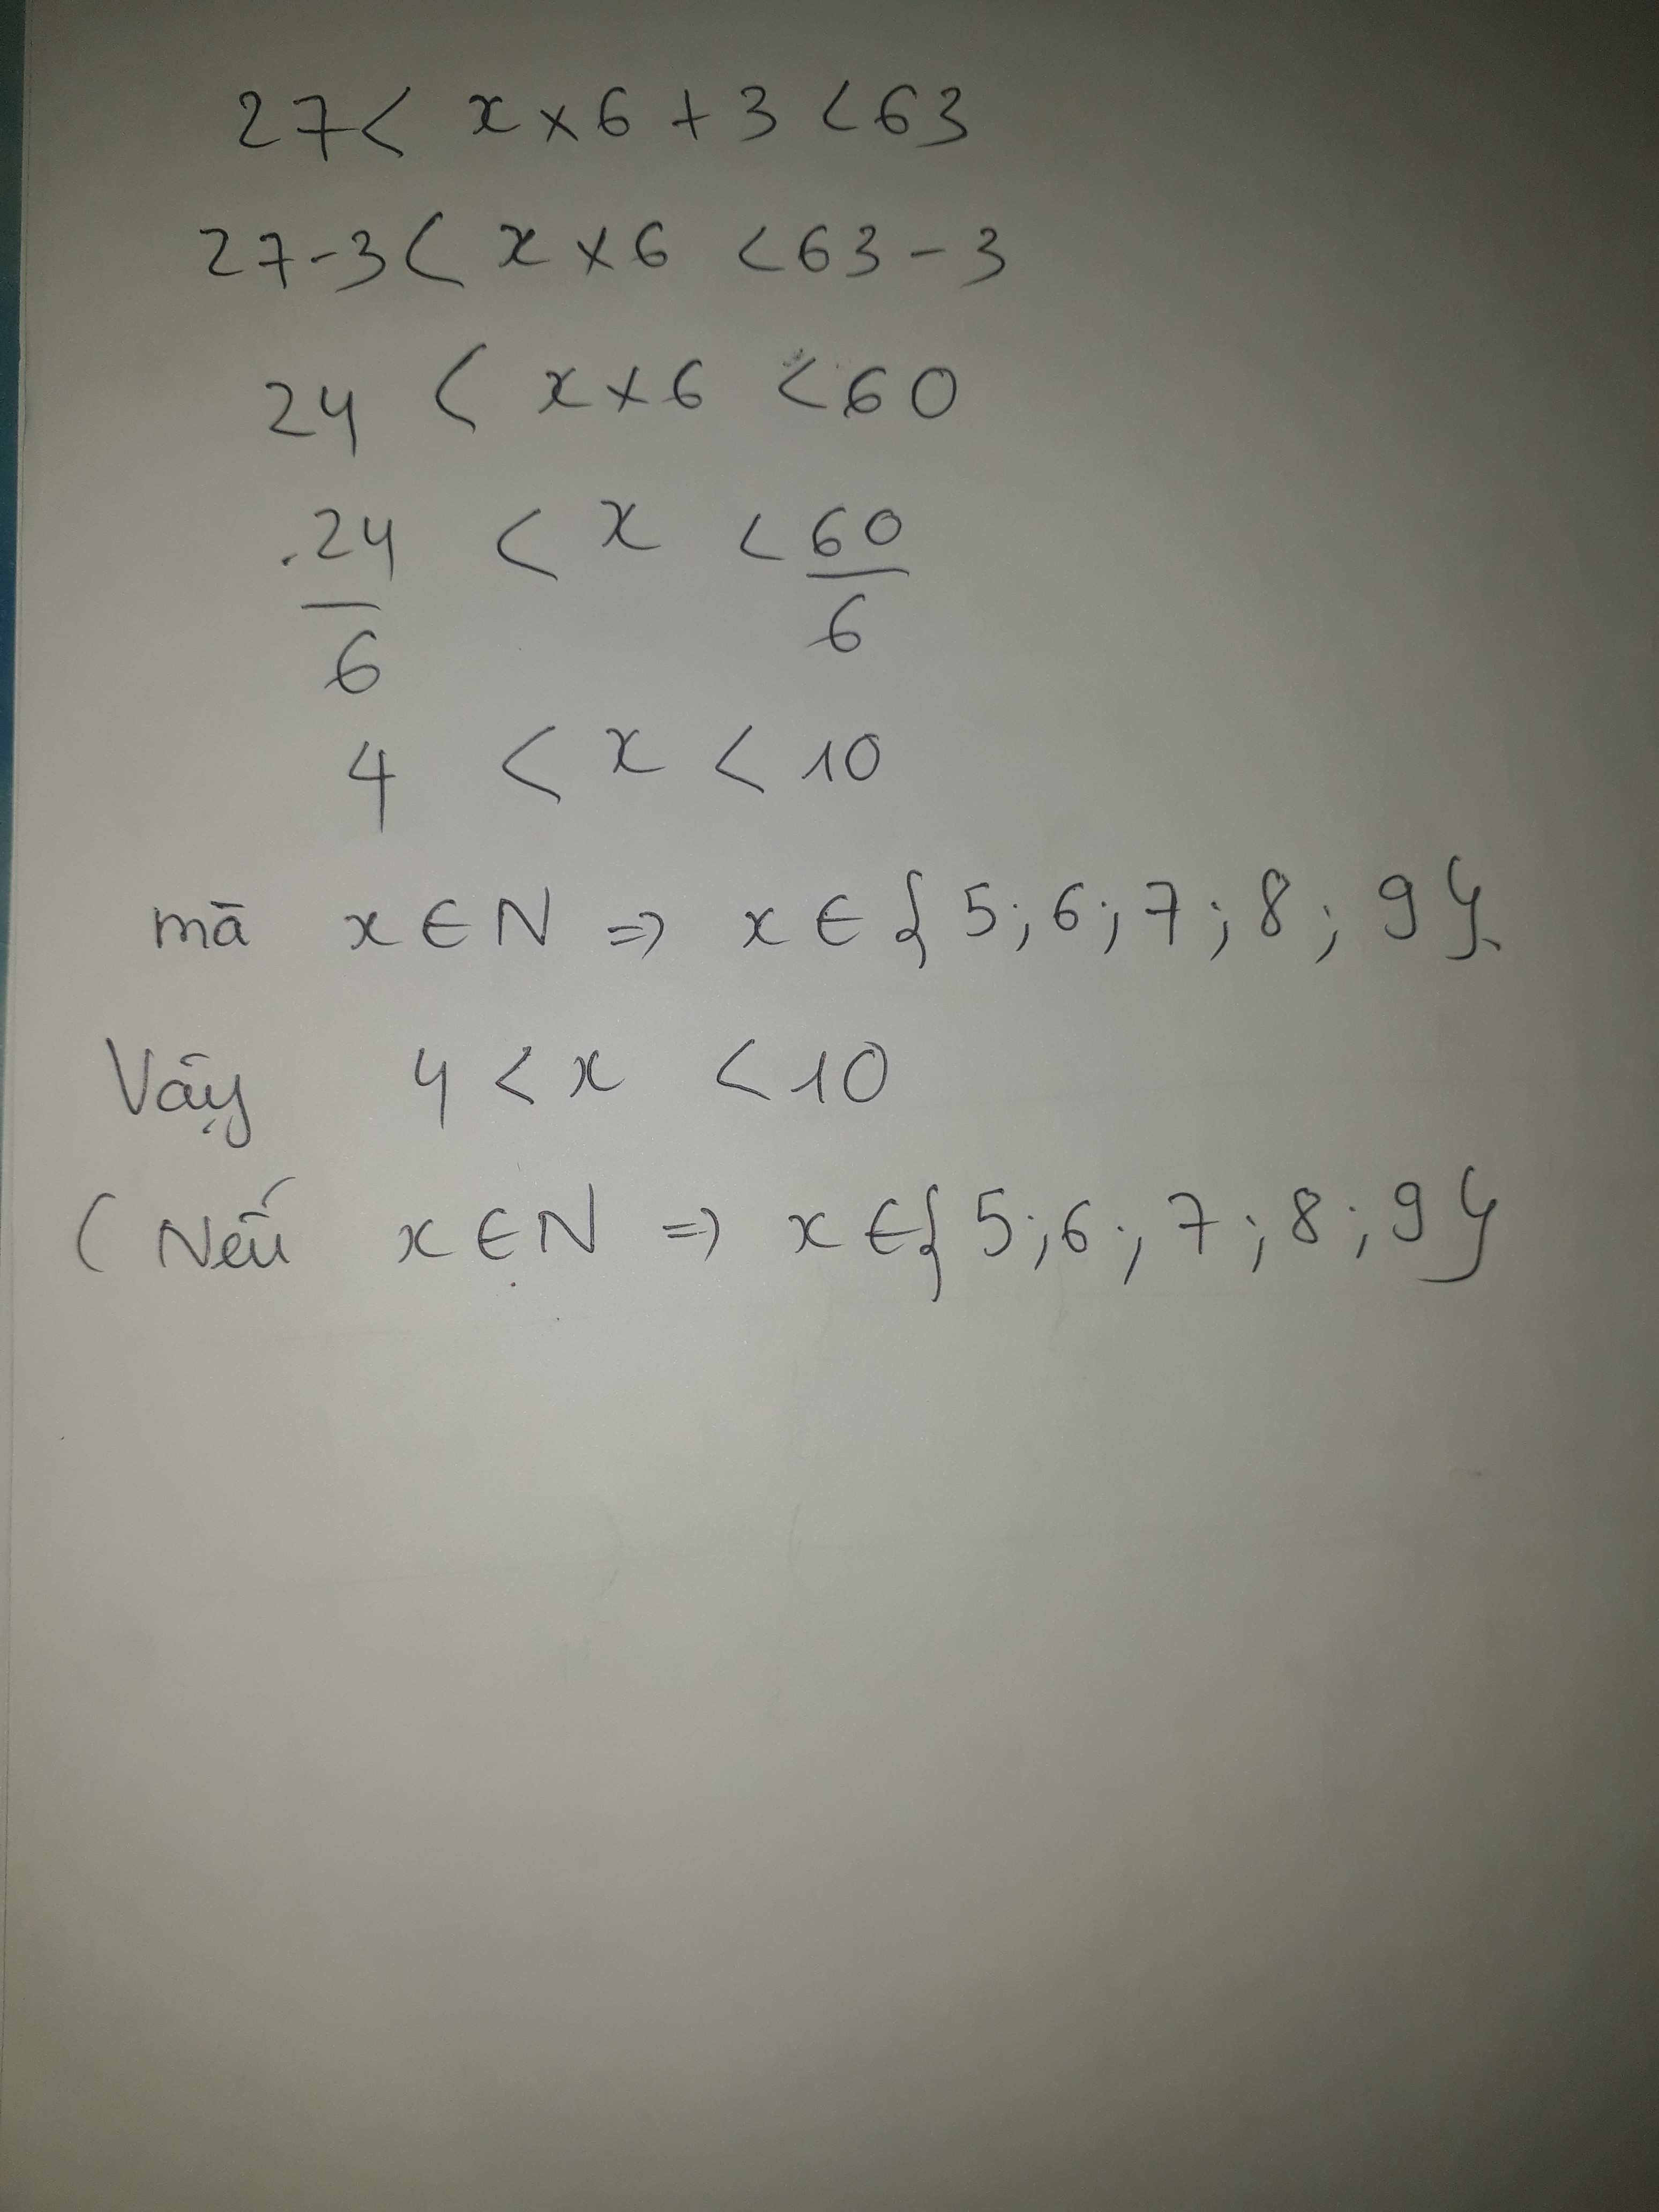 27 < x × 6 + 3 < 63
27 - 3 < x × 6 < 63 - 3
24 < x × 6 < 60
24/6 < x < 60/6
4 < x < 10
mà x ∈ N => x ∈ { 5 ; 6 ; 7 ; 8 ; 9 }.
Vậy 4 < x < 10
( Nếu x ∈ N => x ∈ { 5 ; 6 ; 7 ; 8 ; 9 }